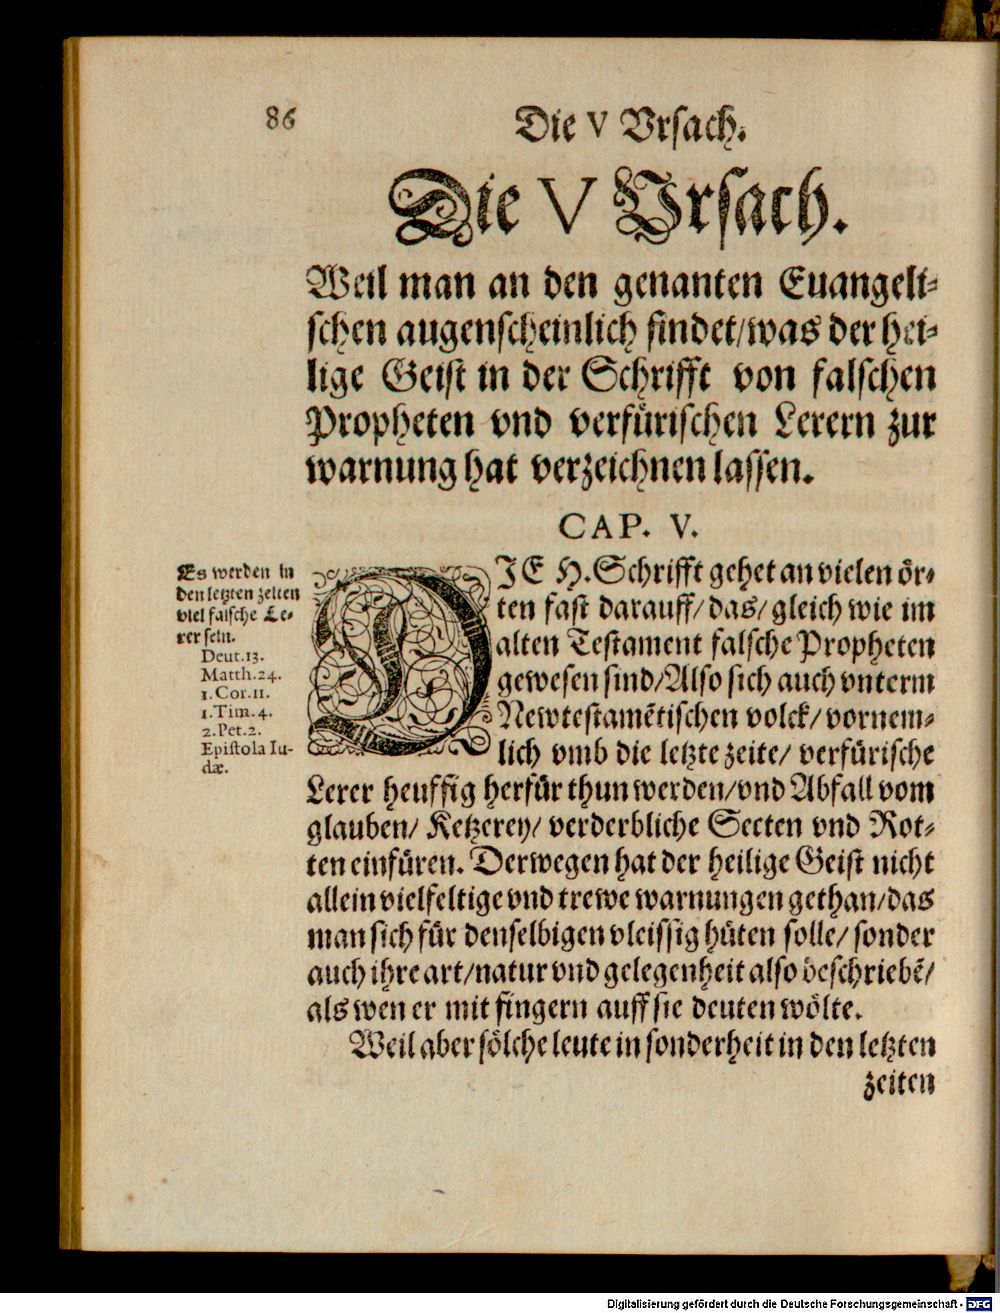 86
Die V Vrsach.
Die V Vrsach.
Weil man an den genanten Euangeli-
schen augenscheinlich findet/was der hei-
lige Geist in der Schrifft von falschen
Propheten vnd verfürischen Lerern zur
warnung hat verzeichnen lassen.
CAP. V.
Es werden in
den letzten zeiten
viel falsche Le-
rer sein.
Deut.13.
Matth.24.
1.Cor.11.
1.Tim.4.
2.Pet.2.
Epistola Iu-
dæ.
DIE H.Schrifft gehet an vielen ör-
ten fast darauff/das/gleich wie im
alten Testament falsche Propheten
gewesen sind/Also sich auch vnterm
Newtestamētischen volck/vornem-
lich vmb die letzte zeite/verfürische
Lerer heuffig herfür thun werden/vnd Abfall vom
glauben/Ketzerey/verderbliche Secten vnd Rot-
ten einfüren. Derwegen hat der heilige Geist nicht
allein vielfeltige vnd trewe warnungen gethan/das
man sich für denselbigen vleissig hüten solle/sonder
auch ihre art/natur vnd gelegenheit also beschriebē/
als wen er mit fingern auff sie deuten wölte.
Weil aber sölche leute in sonderheit in den letzten
zeiten
Digitalisierung gefördert durch die Deutsche Forschungsgemeinschaft - DFG